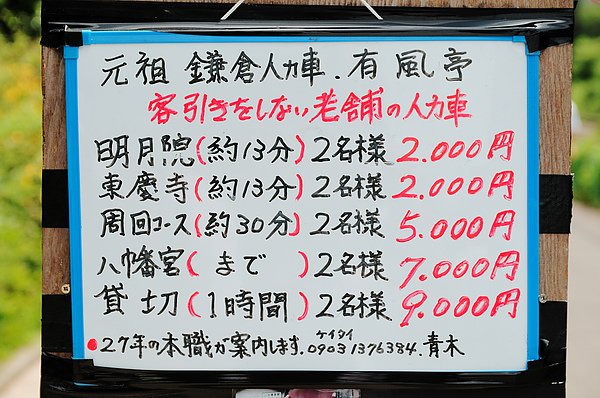 元祖 鎌倉人力車.有風亭
客引きをしない老舗の人力車
明月院(約13分)2名様 2.000円
東慶寺(約13分)2名様 2.000円
周回コース(約30分)2名様 5.000円
八幡宮( まで )2名様 7.000円
貸切(1時間)2名様 9.000円
●27年の本職が案内します.ケイタイ 09031376384.青木